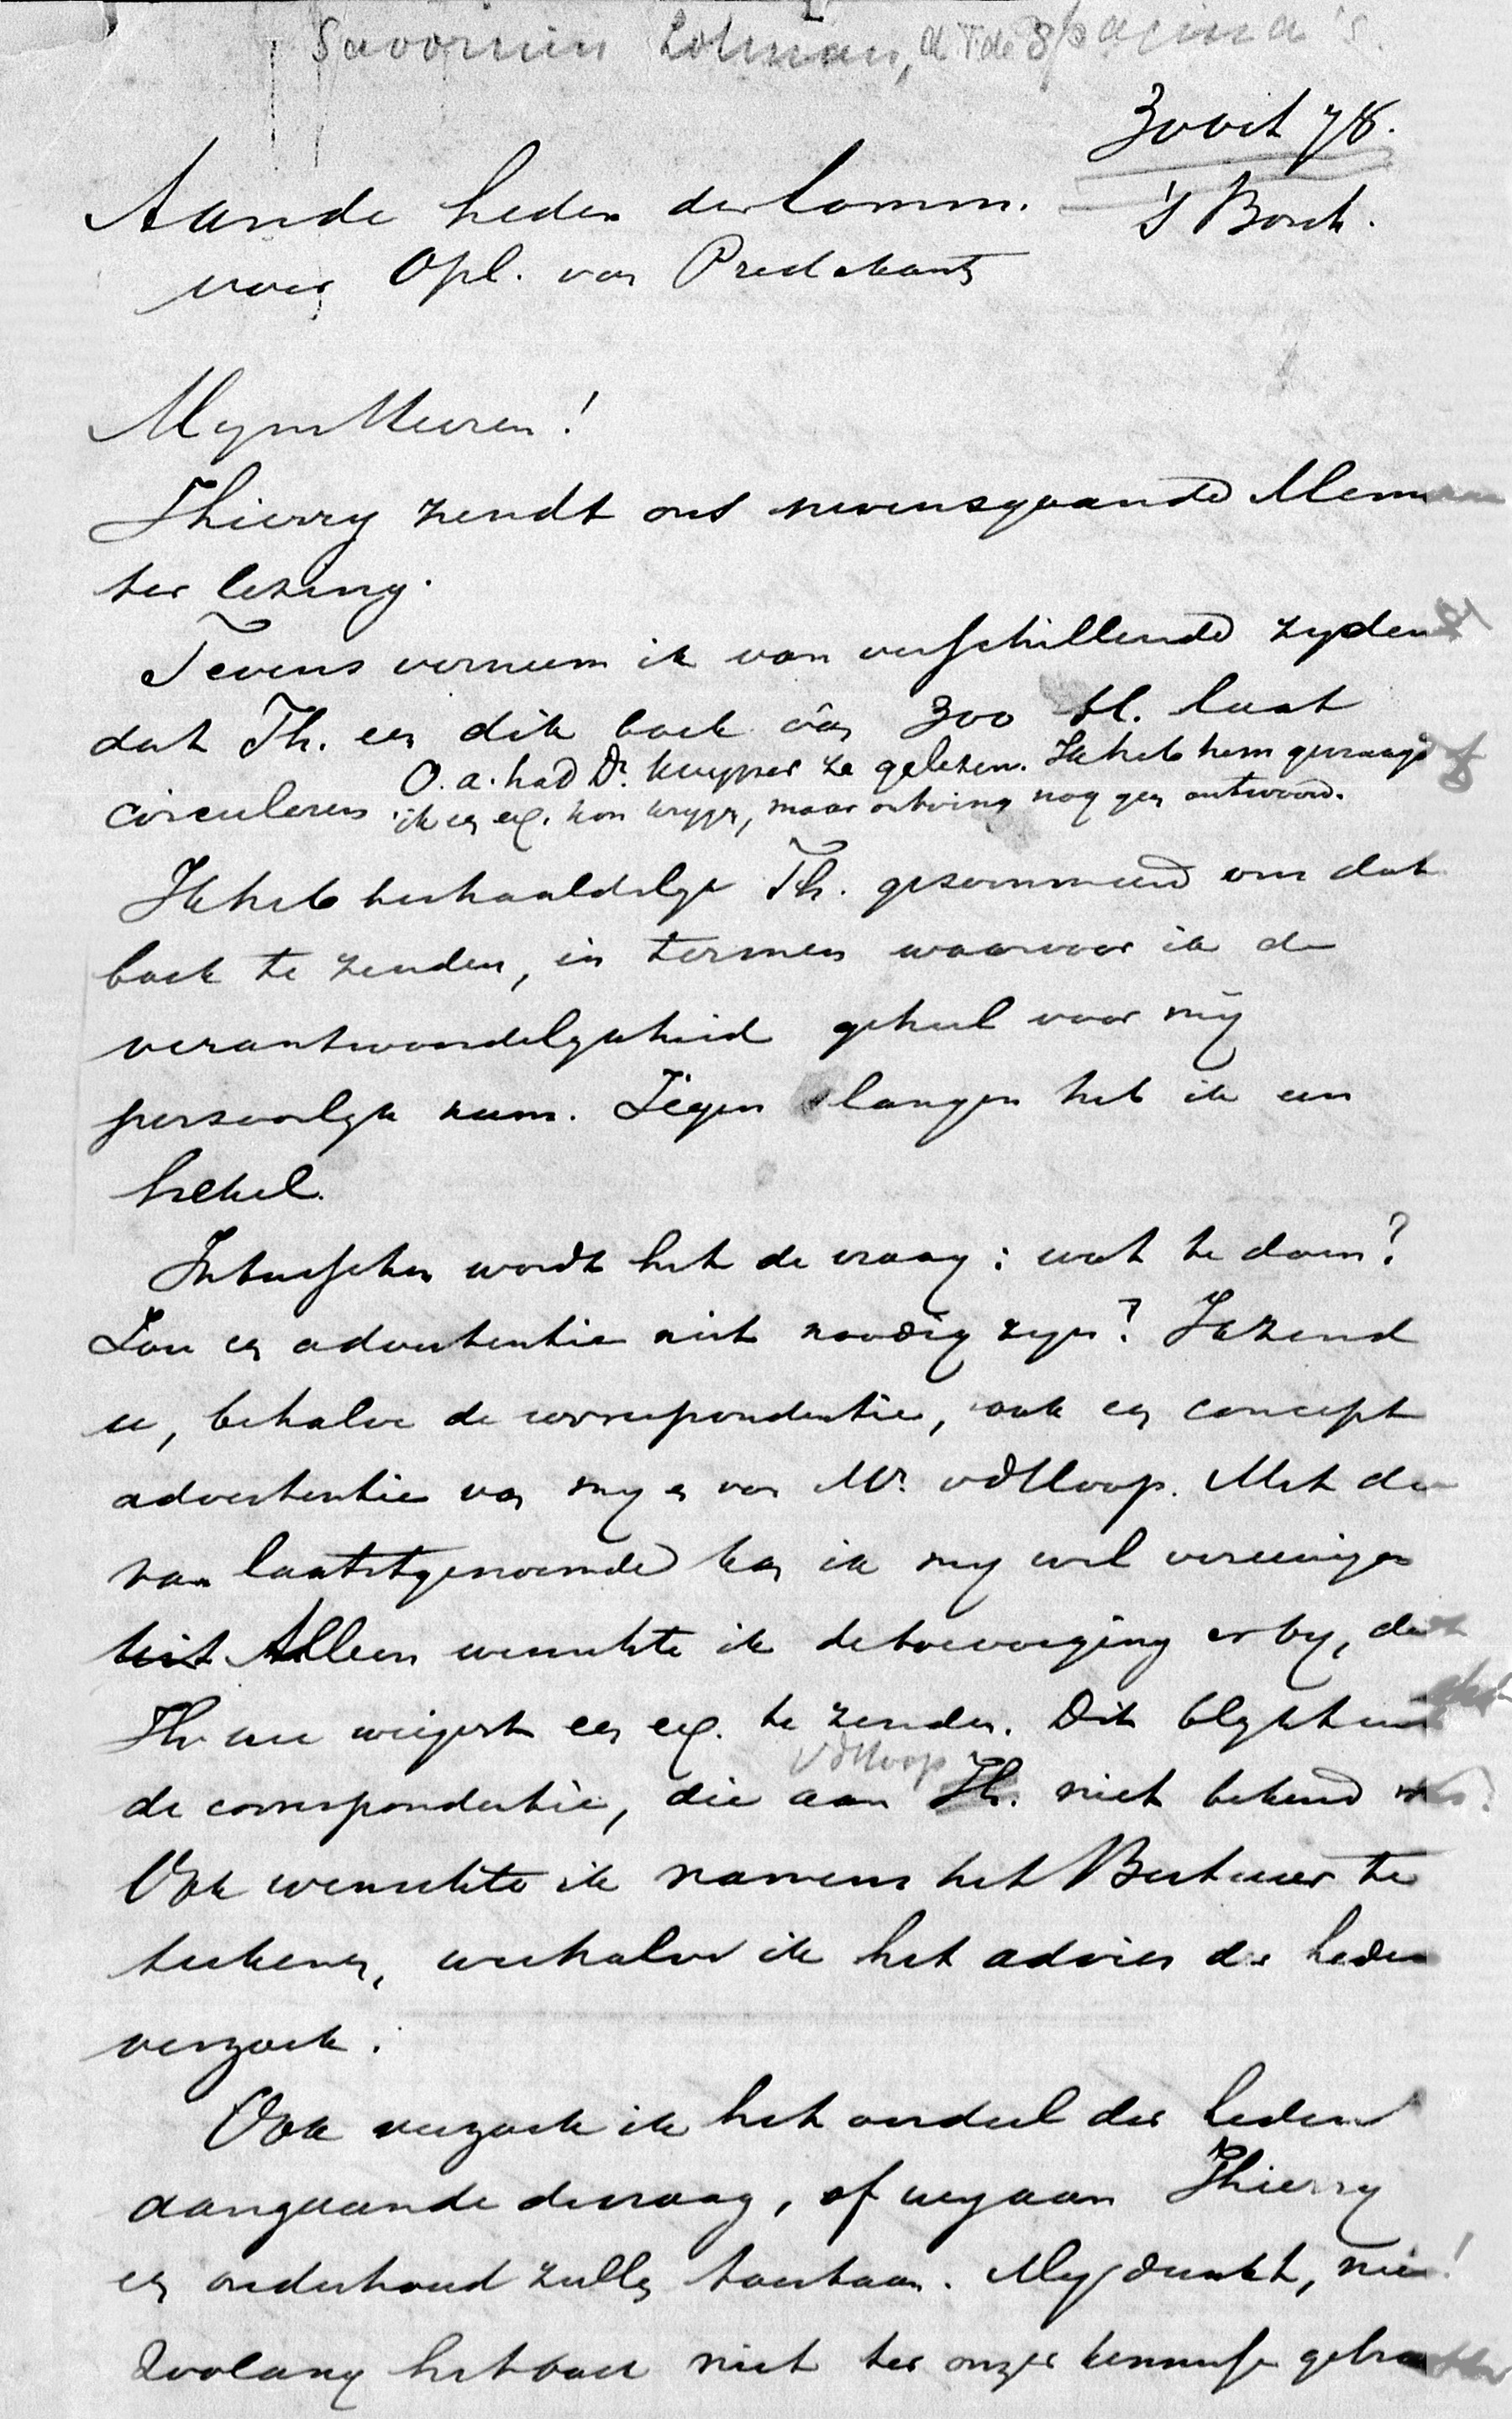 Savornin Lohman, A F de 8 pagina's.
30 oct 78.
's Bosch.
Aan de Leden der Comm.
voor Opl. van Predikants
Mijne Heeren!
Thierry zendt ons nevensgaande Mem
ter lezing.
Tevens verneem ik van verschillende zyden
dat Th. een dik boek van 300 bl. laat
circuleren O.a. had Dr. Kuyper ze gelezen. Ik heb hem gevraagd
ik een ex. kon krygen, maar ontving nog geen antwoord.
Ik heb herhaaldelyk Th. gesommeerd om dat
boek te zenden, in termen waarvoor ik de
verantwoordelykheid geheel voor mij
persoonlyk neem. Tegen slangen heb ik een
hekel.
Intusschen wordt het de vraag: wat te doen?
Zou een advertentie niet noodig zyn? Ik zend
u, behalve de correspondentie, ook een concept
advertentie van my en van Mr. vdHoop. Met de
van laatstgenoemde kan ik my wel vereenigen
Alleen wenschte ik de toevoeging erby, dat
Th. me weigert een ex. te zenden. Dit blykt uit
vdHoop
de correspondentie, die aan Th. niet bekend was.
Ook wenschte ik namens het Bestuur te
teekenen, weshalve ik het advies der Leden
verzoek.
Ook verzoek ik het oordeel der Leden
aangaande de vraag, of wy aan Thierry
een onderhoud zullen toestaan. My dunkt, niet!
Zoolang het boek niet ter onzer kennisse gebracht